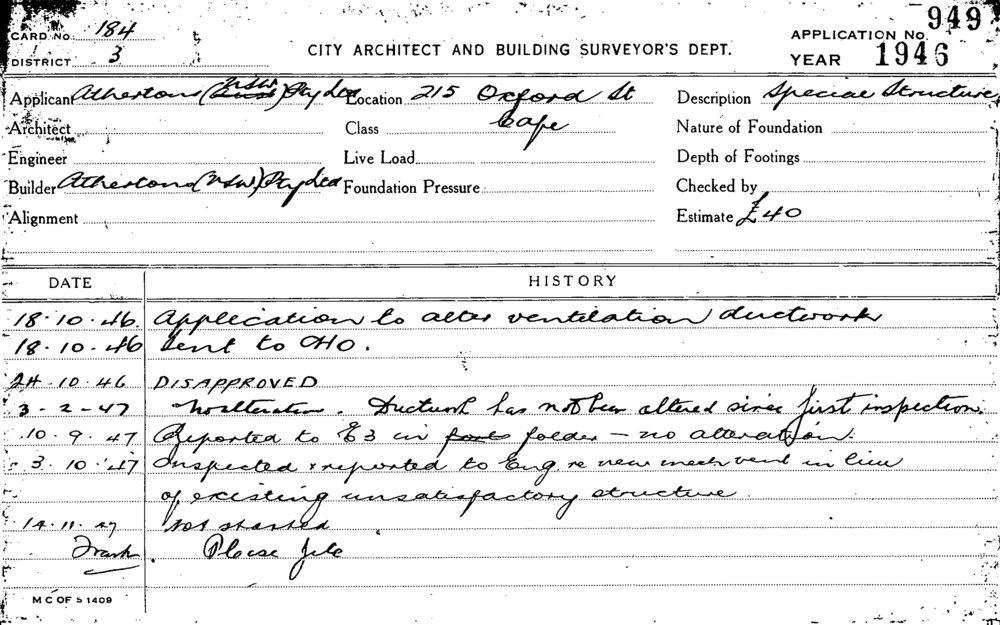 CARD No. 184
DISTRICT 3
CITY ARCHITECT AND BUILDING SURVEYOR'S DEPT.
APPLICATION No. 949
YEAR 1946
Applicant Athertons (NSW) Pty Ltd
Location 215 Oxford St
Description Special Structure
Architect
Class Cafe
Nature of Foundation
Engineer
Live Load
Depth of Footings
Builder Athertons (NSW) Pty Ltd
Foundation Pressure
Checked by
Alignment
Estimate £40
DATE HISTORY
18.10.46. Application to alter ventilation ductwork
18.10.46 Sent to CHO.
24.10.46 DISAPPROVED
3-2-47 No alteration. Ductwork has not been altered since first inspection.
10.9.47 Reported to E3 in folder - no alteration.
3.10.47 Inspected & reported to Eng re new mech vent in lieu
of existing unsatisfactory structure
14.11.47 Not started
Please file
M C OF S 1409